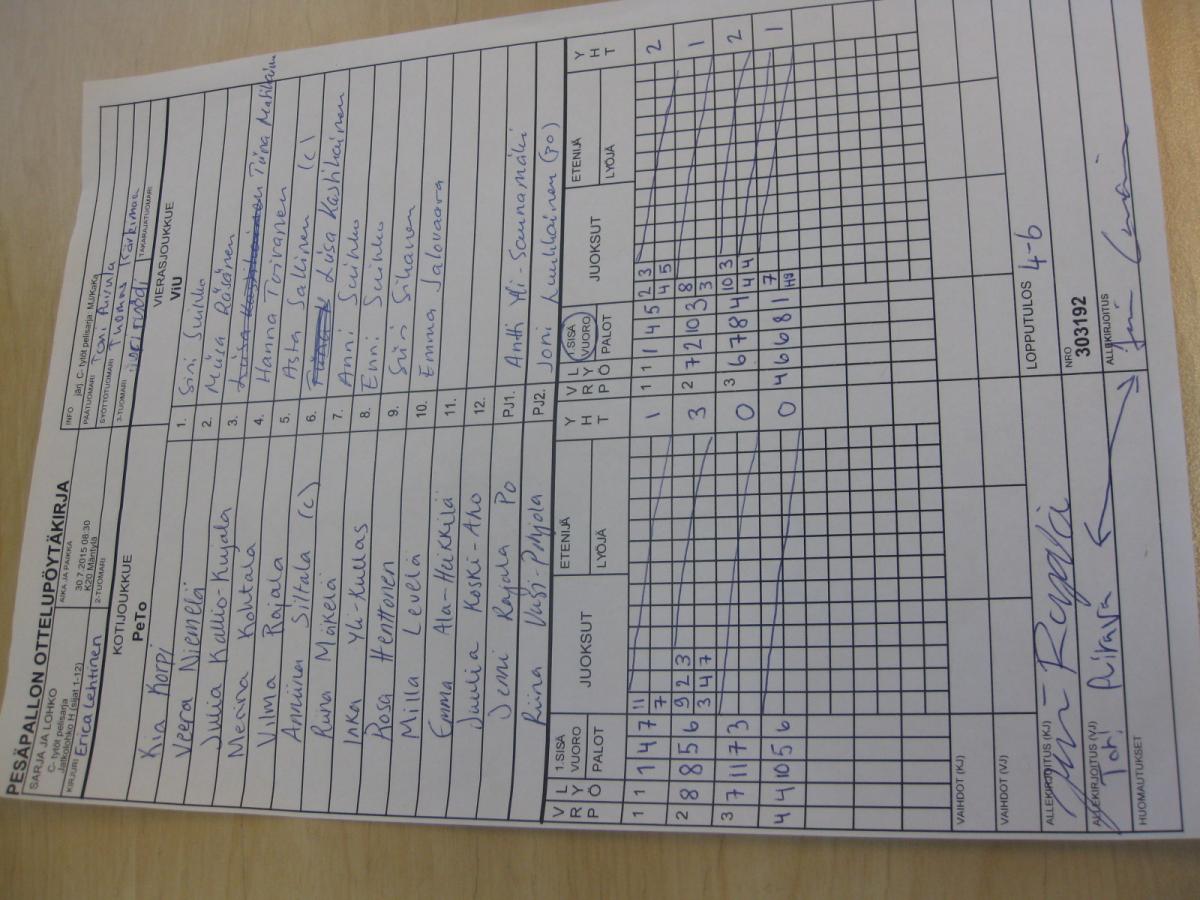 PESÄPALLON OTTELUPÖYTÄKIRJA
SARJA JA LOHKO
C- tytöt pelisarja
Jatkolohko H (sijat 1-12)
AIKA JA PAIKKA
30.7.2015 08:30
K20 Mäntylä
INFO järj. C- tytöt pelisarja: MJ/KaKa
PÄÄTUOMARI Toni Puirula
SYÖTTÖTUOMARI Thomas
KIRJURI Erica Lehtinen
2-TUOMARI
3-TUOMARI
TAKARAJATUOMARI
KOTIJOUKKUE
PeTo
VIERASJOUKKUE
ViU
Kia Korpi 1. Siri Suihko
Veera Niemelä 2. Miisa Räsänen
Julia Kallio-Kujala 3. Tiina Matikainen
Merina Kohtala 4. Hanna Toivanen
Vilma Rajala 5. Asta Sallinen (c)
Anniina Siltala (c) 6. Liisa Kastikainen
Riina Mäkelä 7. Anni Suihko
Inka Yli-Kullas 8. Enni Suihko
Rosa Henttonen 9. Siiri Sihanen
Milla Levelä 10. Emma Jalovaara
Emma Ala-Heikkilä 11.
Juulia Koski-Aho 12.
Jenni Rajala Po PJ1. Antti Yli-Saunamäki
Riina PJ2. Joni Luukkainen (po)
V R P L Y Ö 1.SISÄ VUORO PALOT JUOKSUT ETENIJÄ LYÖJÄ Y H T V R P L Y Ö 1.SISÄ VUORO PALOT JUOKSUT ETENIJÄ LYÖJÄ Y H T
1 1 1 4 7 11 7 1 1 1 1 4 5 2 3 4 5 2
2 8 8 5 6 9 2 3 3 4 7 3 2 7 2 10 3 8 3 1
3 7 11 7 3 0 3 6 7 8 4 10 3 4 4 2
4 4 10 5 6 0 4 6 6 8 1 7 1
VAIHDOT (KJ)
VAIHDOT (VJ)
LOPPUTULOS 4-6
ALLEKIRJOITUS (KJ)
NRO
303192
ALLEKIRJOITUS (VJ) Toni
ALLEKIRJOITUS
HUOMAUTUKSET